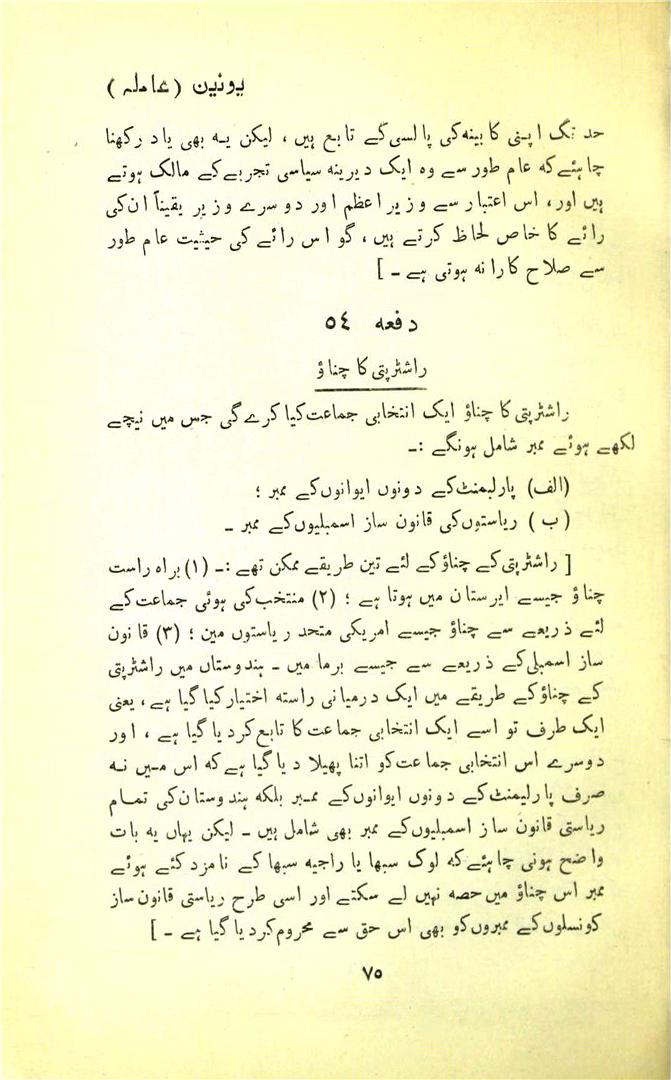 یونین (عاملہ)
حد تک اپنی کابینہ کی پالسی کے تابع ہیں، لیکن یہ بھی یاد رکھنا
چاہئے کہ عام طور سے وہ ایک دیرینہ سیاسی تجربے کے مالک ہوتے
ہیں اور، اس اعتبار سے وزیر اعظم اور دوسرے وزیر یقیناً ان کی
رائے کا خاص لحاظ کرتے ہیں، گو اس رائے کی حیثیت عام طور
سے صلاح کارانہ ہوتی ہے ۔ ]
دفعہ ٥٤
راشٹرپتی کا چناؤ
راشٹرپتی کا چناؤ ایک انتخابی جماعت کیا کرے گی جس میں نیچے
لکھے ہوئے ممبر شامل ہونگے :۔
(الف) پارلیمنٹ کے دونوں ایوانوں کے ممبر ؛
(ب) ریاستوں کی قانون ساز اسمبلیوں کے ممبر ۔
[ راشٹرپتی کے چناؤ کے لئے تین طریقے ممکن تھے :۔ (١) براہ راست
چناؤ جیسے ایرستان میں ہوتا ہے ؛ (٢) منتخب کی ہوئی جماعت کے
لئے ذریعے سے چناؤ جیسے امریکی متحد ریاستوں مین ؛ (٣) قانون
ساز اسمبلی کے ذریعے سے جیسے برما میں ۔ ہندوستاں میں راشٹرپتی
کے چناؤ کے طریقے میں ایک درمیانی راستہ اختیار کیا گیا ہے، یعنی
ایک طرف تو اسے ایک انتخابی جماعت کا تابع کردیا گیا ہے، اور
دوسرے اس انتخابی جماعت کو اتنا پھیلا دیا گیا ہے کہ اس میں نہ
صرف پارلیمنٹ کے دونوں ایوانوں کے ممبر بلکہ ہندوستان کی تمام
ریاستی قانون ساز اسمبلیوں کے ممبر بھی شامل ہیں ۔ لیکن یہاں یہ بات
واضح ہونی چاہئے کہ لوک سبھا یا راجیہ سبھا کے نامزد کئے ہوئے
ممبر اس چناؤ میں حصہ نہیں لے سکتے اور اسی طرح ریاستی قانون ساز
کونسلوں کے ممبروں کو بھی اس حق سے محروم کردیا گیا ہے ۔ ]
٧٥